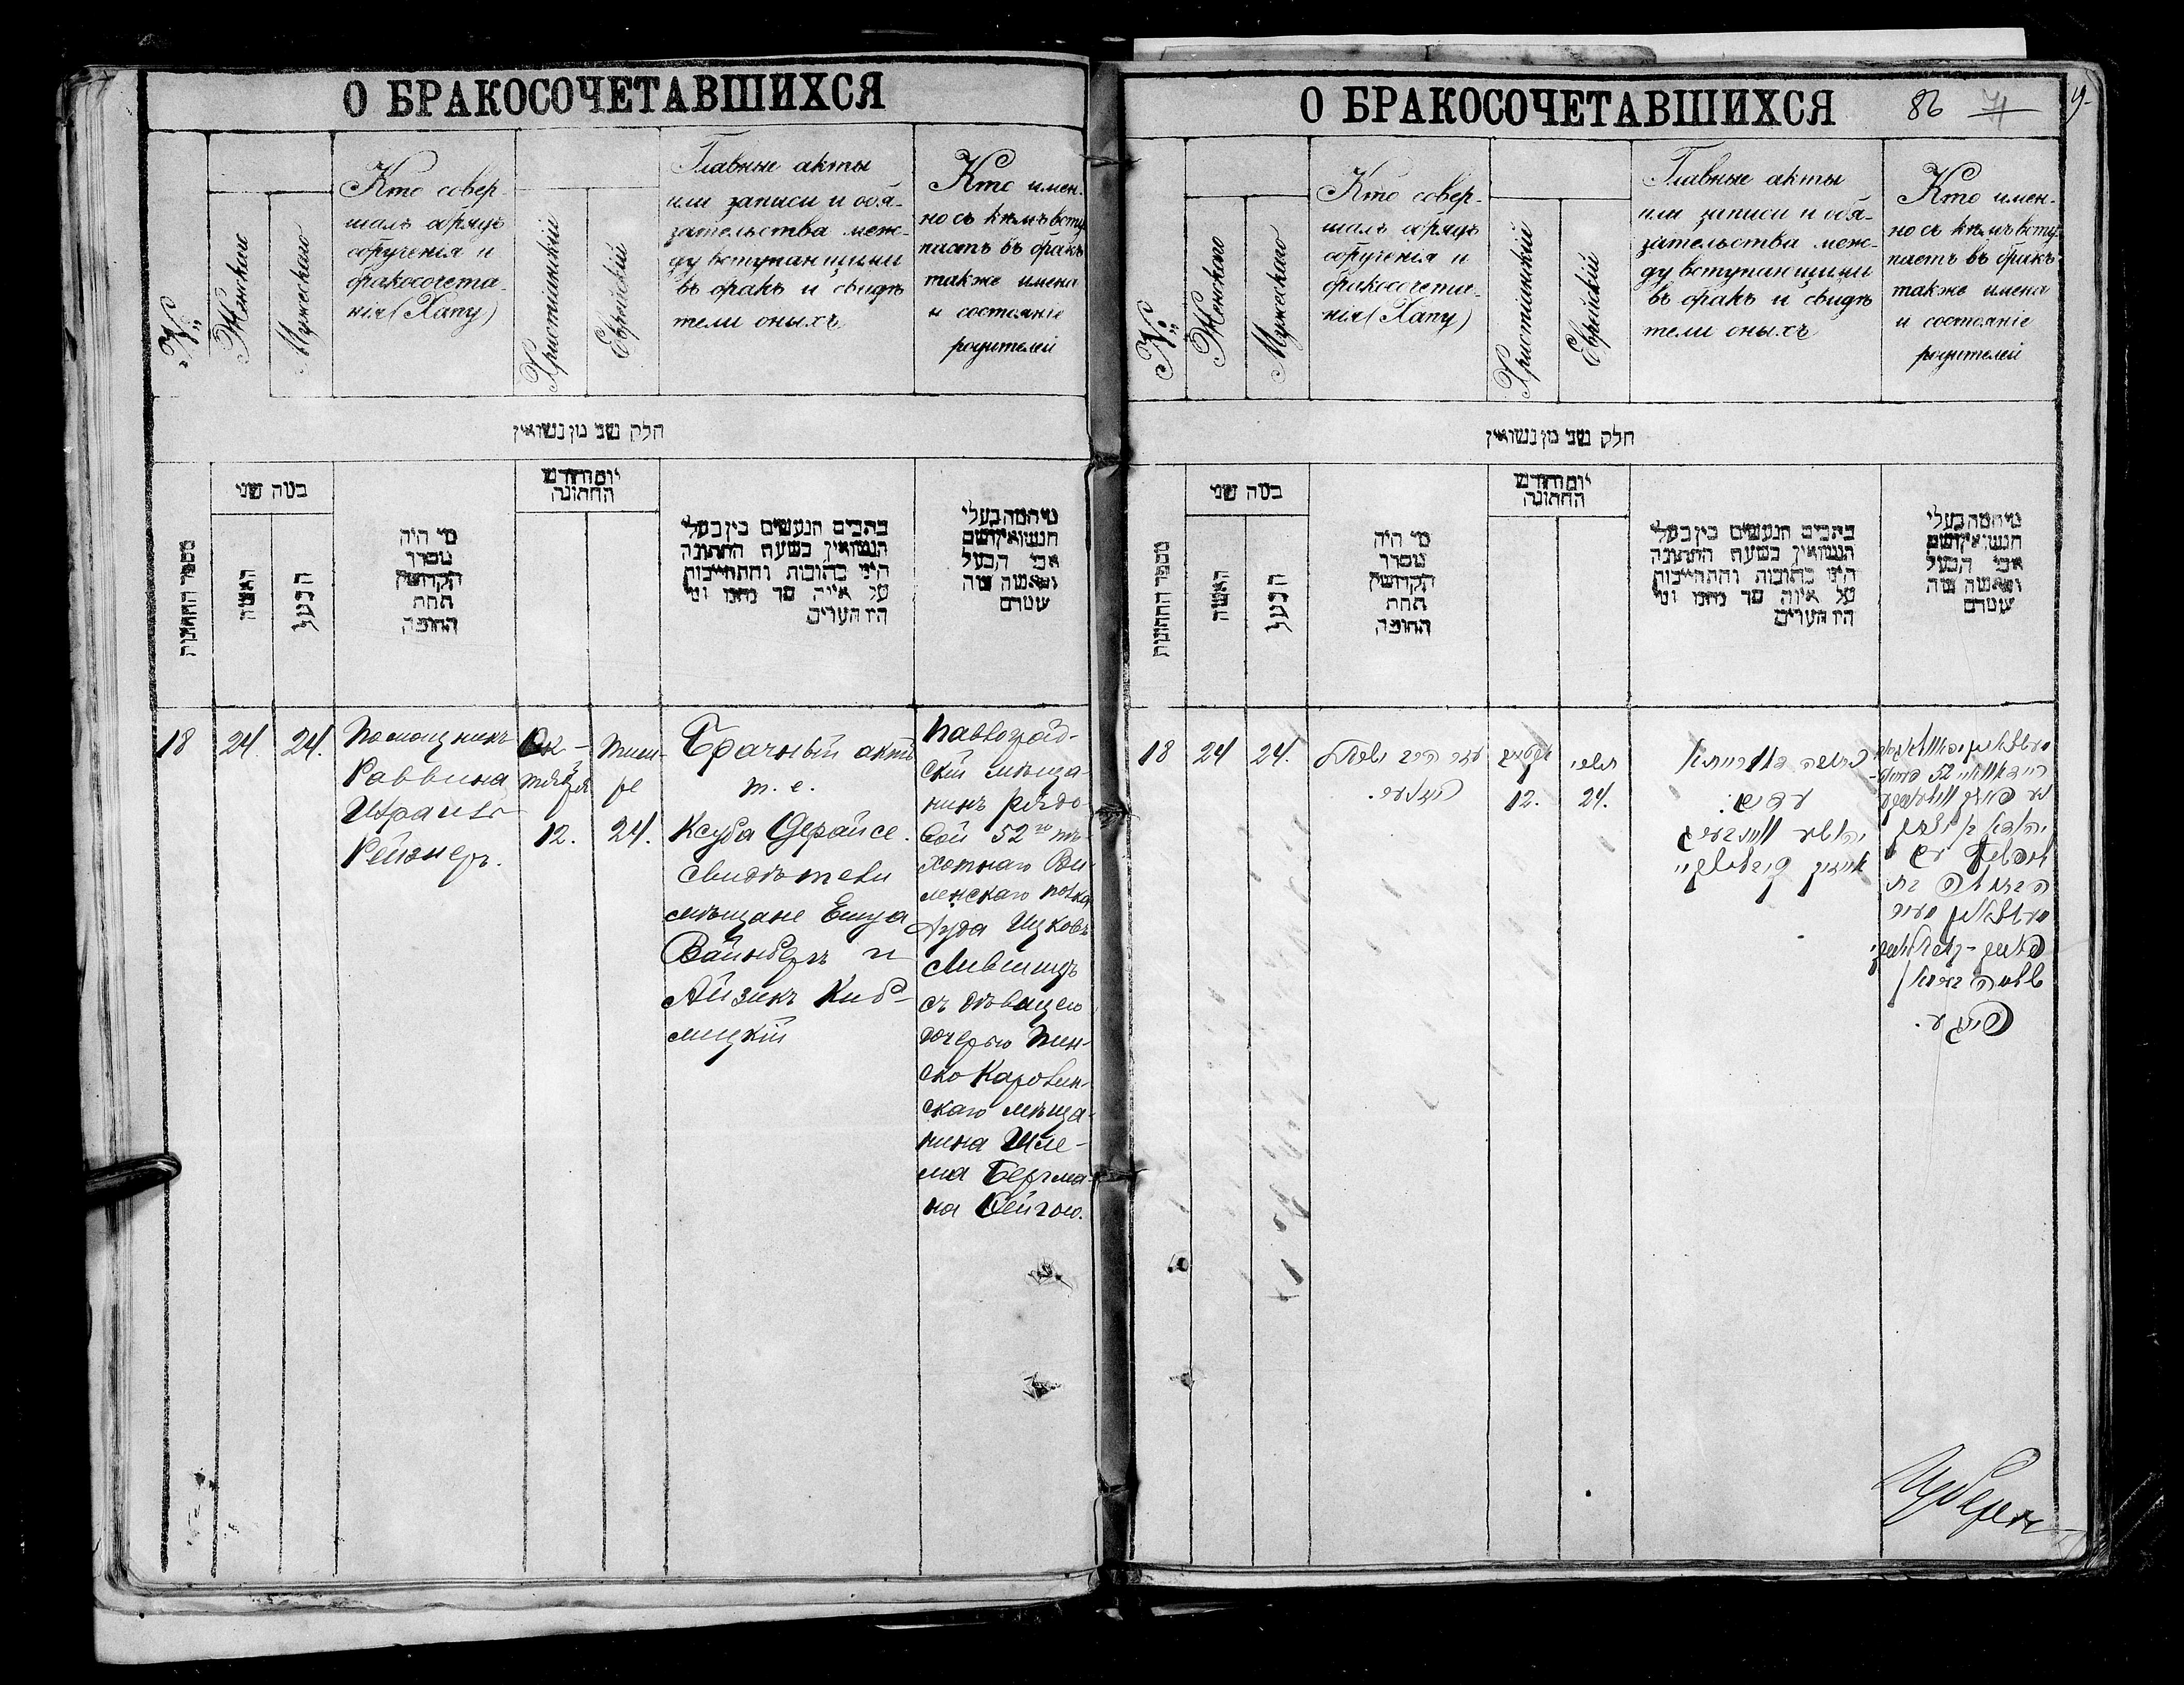 О БРАКОСОЧЕТАВШИХСЯ
№
Женскаго
Мужескаго
Кто совер-
шалъ обрядъ
обрученія и
бракосочета-
нія (Хапу)
Христіанскій
Еврейскій
Главные акты
или записи и обя-
зательства меж-
ду вступающими
въ бракъ и свидѣ
тели оныхъ
Кто имен-
но съ кѣмъ всту
паетъ въ бракъ
также имена
и состояніе
родителей
חלק שני מן נשואין
מספר החתונות
כמה שני
האשה
הבעל
מי היה
מסדר
הקדושין
תחת
החופה
יום וחדש
החתונה
כתבים הנעשים בין בעלי
הנשואין בשעת החתונה
היני כתובות והתחייבות
על איזה סך נתנו ומי
היו העדים
מי המה בעלי
הנשואין ושם
אבי הבעל
והאשה מה
שמם
18
24
24.
Помощникъ
Раввина
Израиль
Рейзнеръ.
Ок-
тября
12.
Тиш-
ре
24.
Брачный актъ
т. е.
Ксуба Дерайсе.
Свидѣтели
мѣщане Евшуа
Вайнберъ и
Айзикъ Киб-
лицкій
Павлоград-
скій мѣща-
нинъ рядо
вой 52го пѣ-
хотнаго Ви-
ленскаго полка
Іуда Ицковъ
Лившицъ
съ дѣвицею
дочерью Пин-
ско Каролин-
скаго мѣща-
нина Шле-
ма Бергма-
на Фейгою.
О БРАКОСОЧЕТАВШИХСЯ
86
71
№
Женскаго
Мужескаго
Кто совер-
шалъ обрядъ
обрученія и
бракосочета-
нія (Хапу)
Христіанскій
Еврейскій
Главные акты
или записи и обя-
зательства меж-
ду вступающими
въ бракъ и свидѣ
тели оныхъ
Кто имен-
но съ кѣмъ всту
паетъ въ бракъ
также имена
и состояніе
родителей
חלק שני מן נשואין
מספר החתונות
כמה שני
האשה
הבעל
מי היה
מסדר
הקדושין
תחת
החופה
יום וחדש
החתונה
כתבים הנעשים בין בעלי
הנשואין בשעת החתונה
היני כתובות והתחייבות
על איזה סך נתנו ומי
היו העדים
מי המה בעלי
הנשואין ושם
אבי הבעל
והאשה מה
שמם
18
24
24.
עזר הרב ישראל
12.
תשרי
24.
כתובה דאורייתא
עדים:
יהושע וויינבערג
אייזיק קיבליצקי
52
יהודא בן יצחק
ליפשיץ עם
הבתולה בת
שלמה בערגמאן
פייגע.